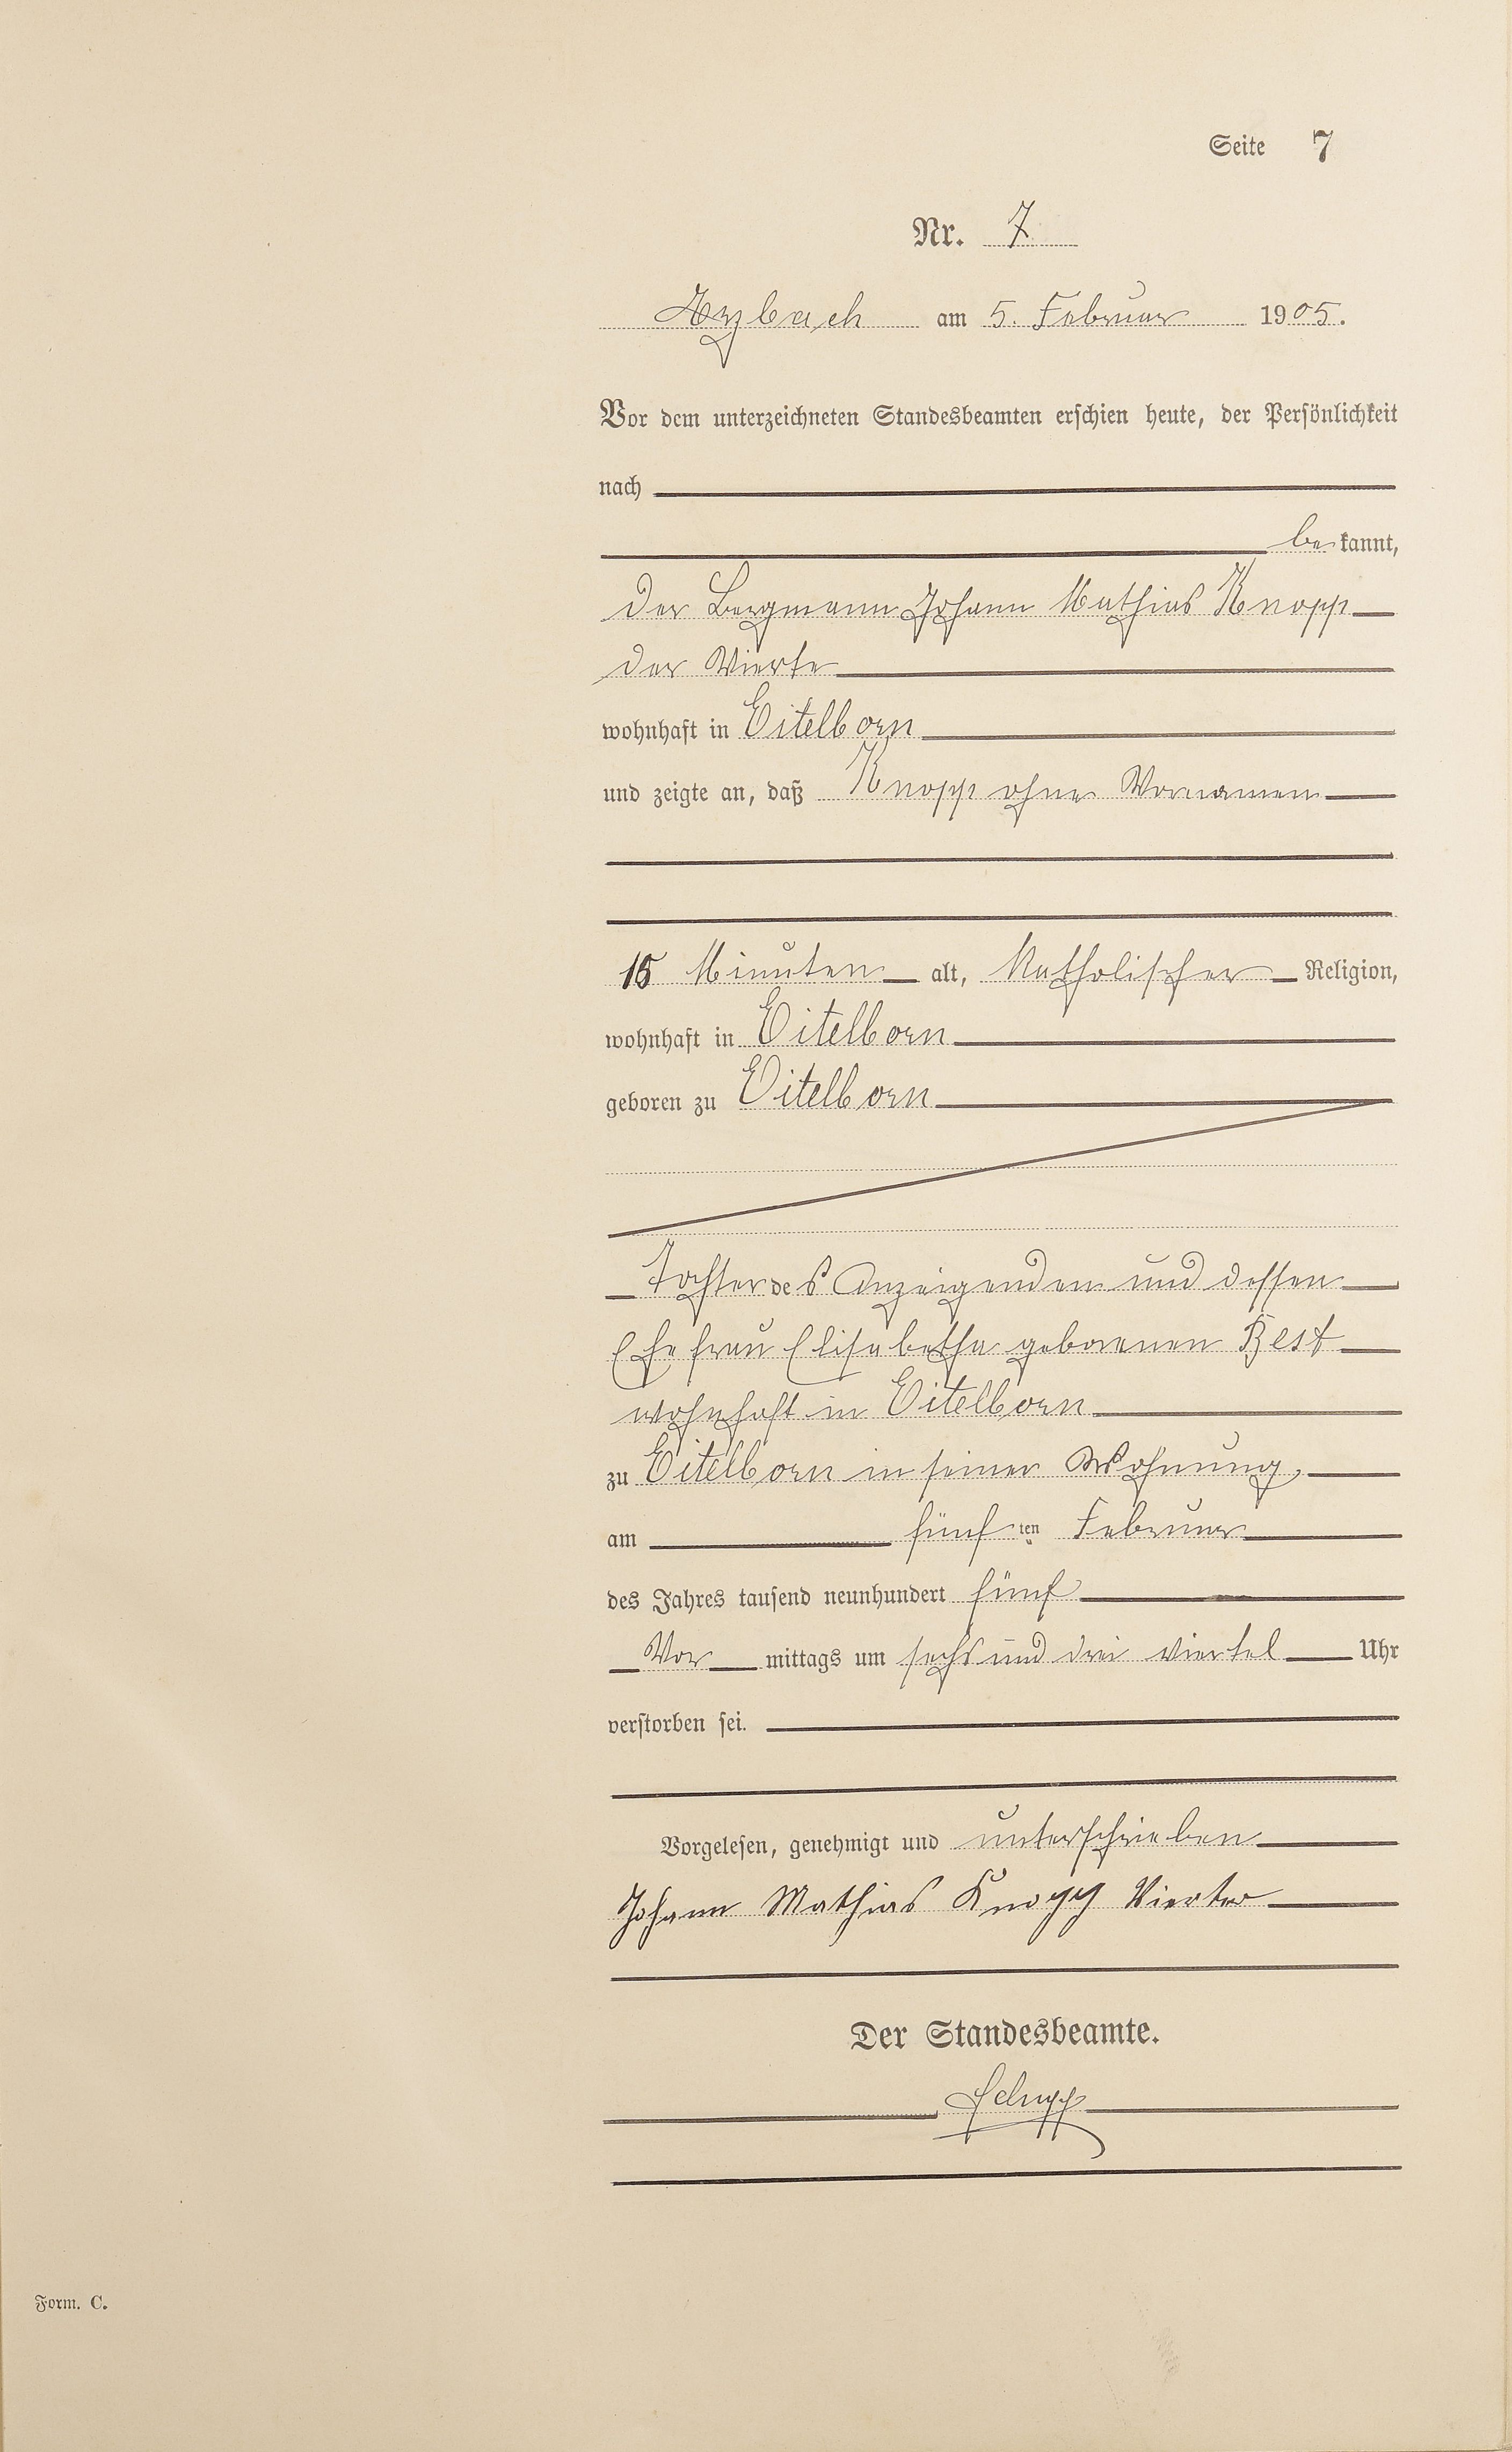 Seite 7
Nr. 7
Arzbach am 5. Februar 1905.
Vor dem unterzeichneten Standesbeamten erschien heute, der Persönlichkeit
nach
bekannt,
der Bergmann Johann Mathias Knopp
der Vierte
wohnhaft in Eitelborn
und zeigte an, daß Knopp ohne Vornamen
15 Minuten alt, katholischer Religion,
wohnhaft in Eitelborn
geboren zu Eitelborn
Tochter des Anzeigenden und dessen
Ehefrau Elisabetha geborenen Best
wohnhaft in Eitelborn
zu Eitelborn in seiner Wohnung,
am fünften Februar
des Jahres tausend neunhundert fünf
Vor mittags um sechs und drei viertel Uhr
verstorben sei.
Vorgelesen, genehmigt und unterschrieben
Johann Mathias Knopp Vierter
Der Standesbeamte.
Form. C.